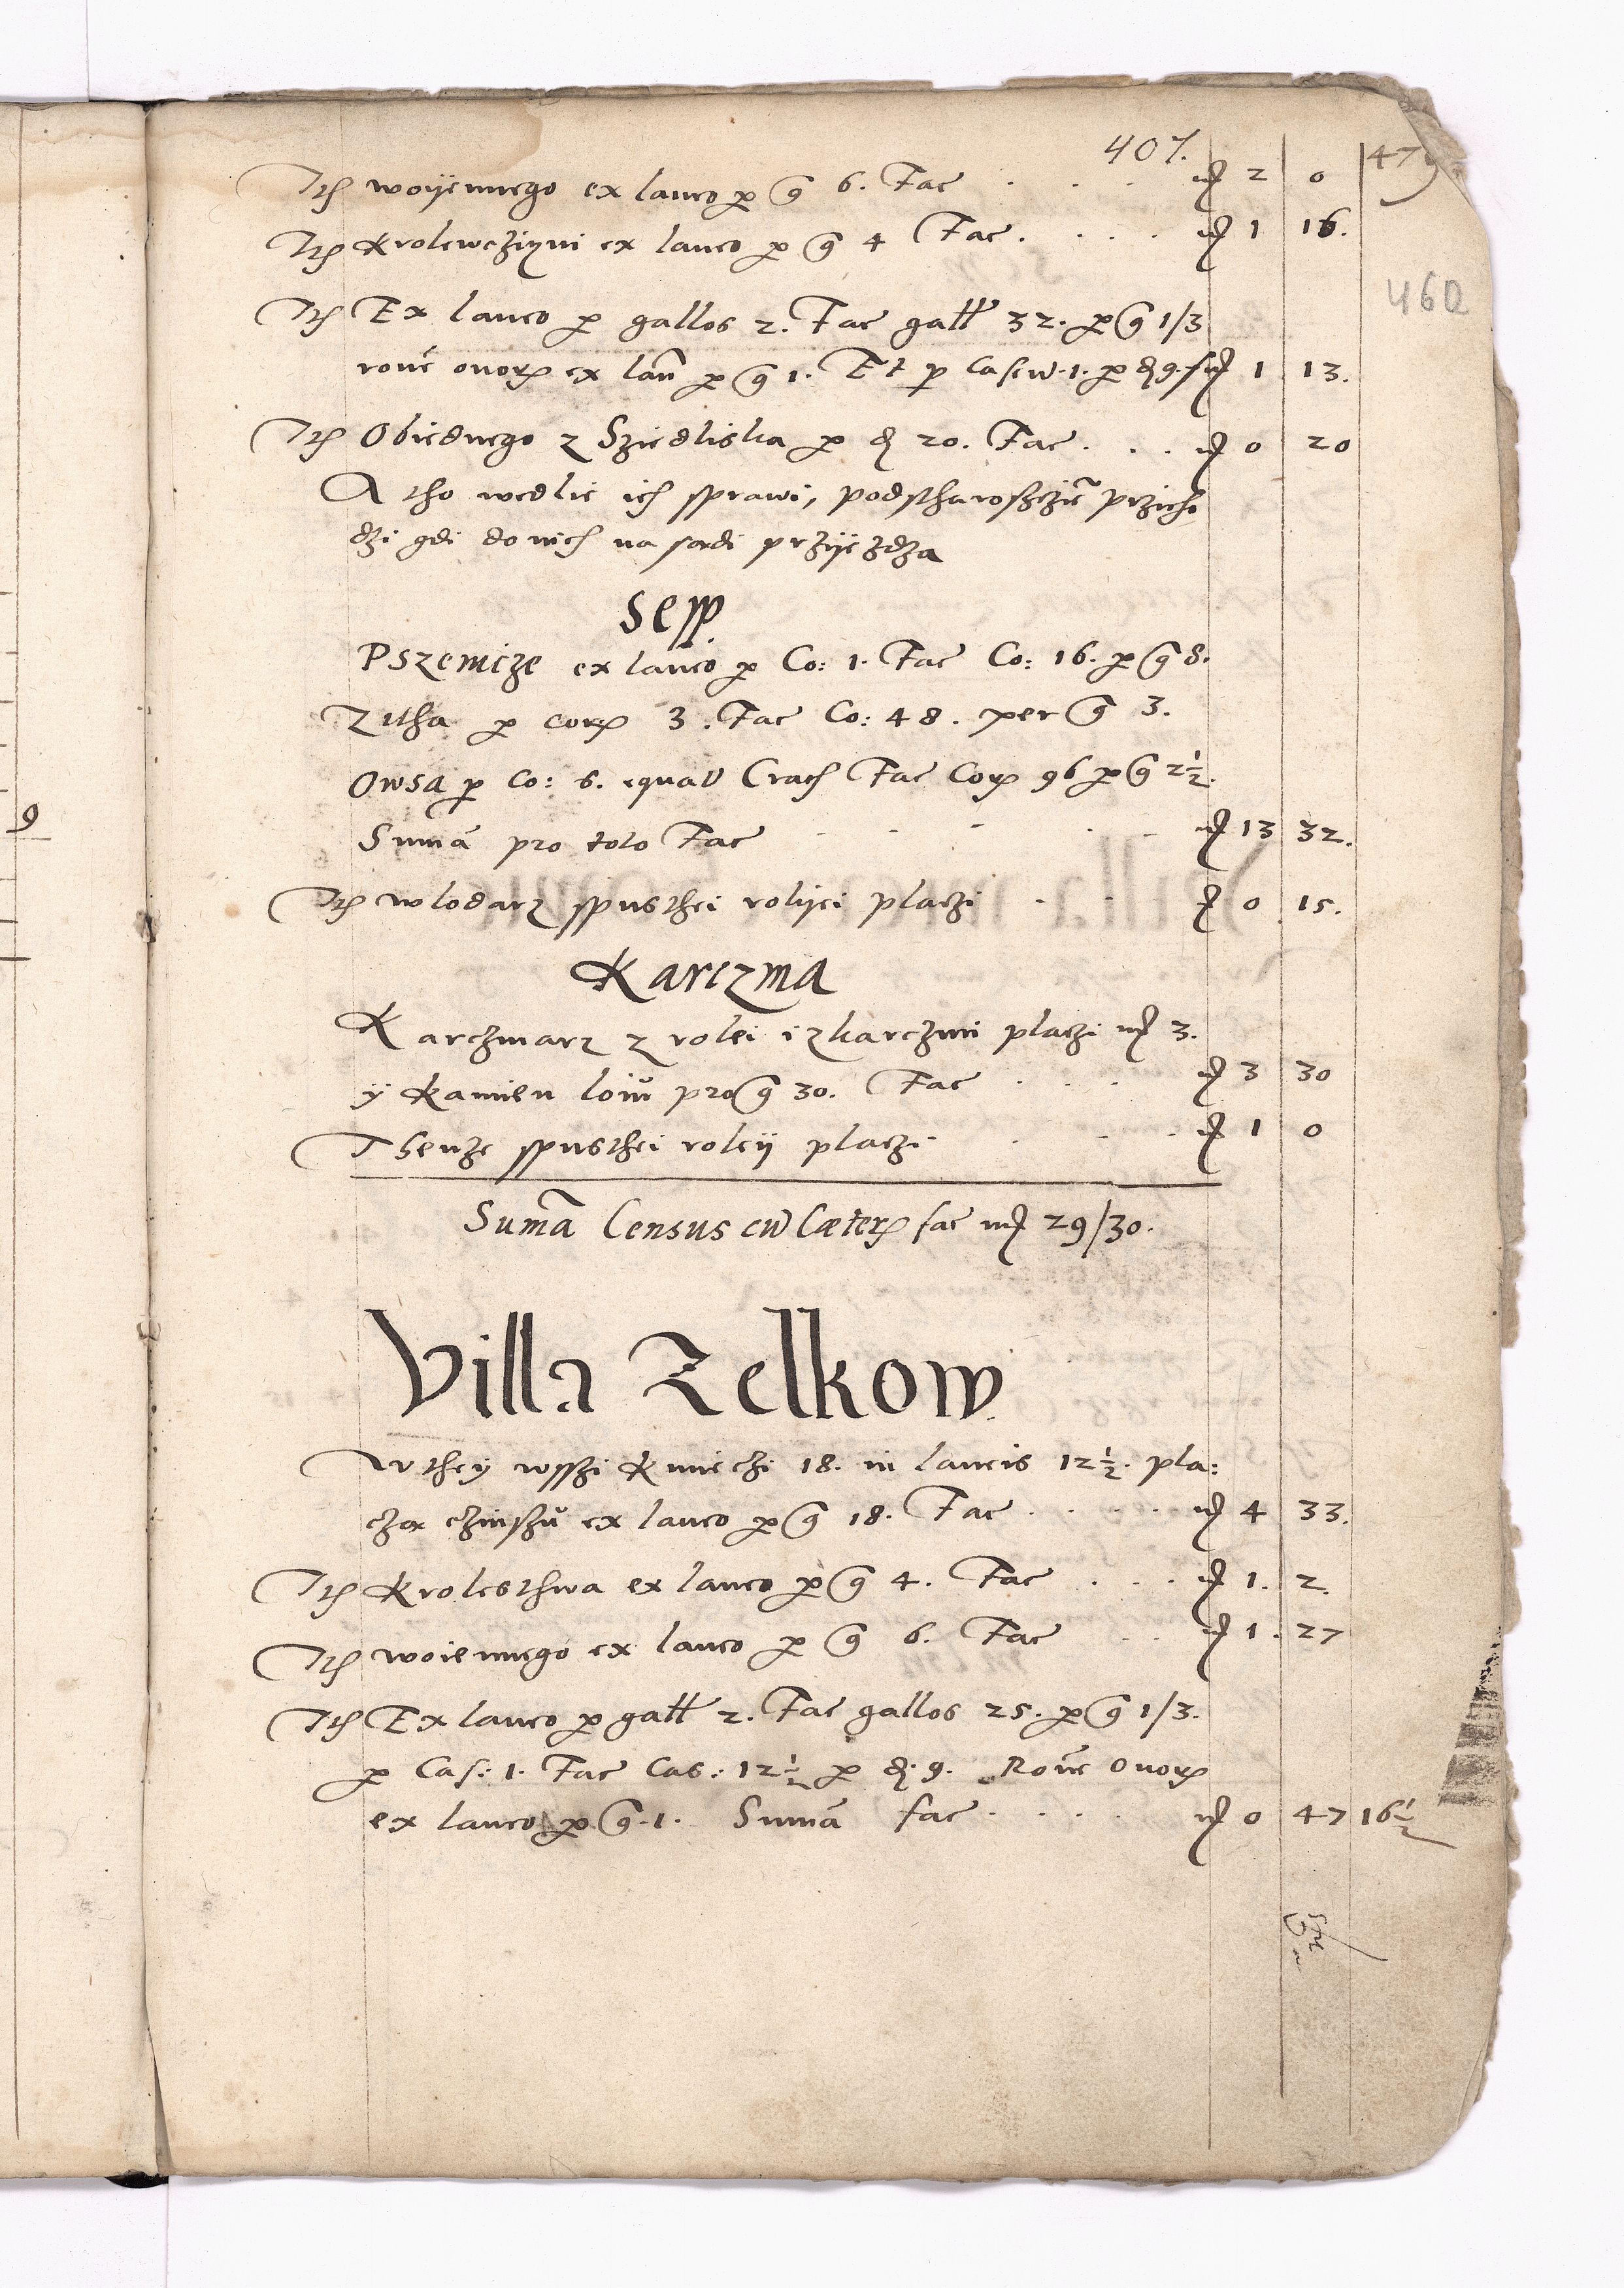 407. 47
460
Ith woijennego ex laneo p g 6. Fac . . . m 2 0
Ith Krolewczizni ex laneo p g 4 Fac . . . . m 1 16.
Ith Ex laneo p gallos 2. Fac gall 32. p g 1/3
rone ouorz ex lan p g 1. Et p Caseu. 1. p d 9. f m 1 13.
Ith Obiednego z Sziedliska p d 20. Fac . . . m 0 20
A tho wedlie ich sprawi, podstharosczie przicho
dzi gdi do nich na sądi przijezdza
Sepp.
Pszenicze ex laneo p Co: 1. Fac Co: 16. p g 8.
Zitha p corz 3. Fac Co: 48. per g 3.
Owsa p Co: 6. equal Crach Fac Corz 96 p g 2½.
Suma pro toto Fac . . . m 13 32.
Ith wlodarz spusthei rolijei placzi . . m 0 15.
Karczma
Karczmarz z rolei i z karczmi placzi m 3.
y Kamien loiu pro g 30. Fac . . . m 3 30
Thenze spusthei roleij placzi . . . m 1 0
Suma Census cu Cæterz fac m 29/30.
Villa Zelkow
W they wsszi Kmieczi 18. in laneis 12½. pla:
czą czinszu ex laneo p g 18. Fac . . . . m 4 33.
Ith Krolesthwa ex laneo p g 4. Fac . . . m 1. 2.
Ith woiennego ex laneo p g 6. Fac . . m 1. 27
Ith Ex laneo p gall 2. Fac gallos 25. p g 1/3.
p Cas: 1. Fac Cas: 12½ p d. 9. Rone Ouorz
ex laneo p g. 1. Suma fac . . . . m 0 47 16½